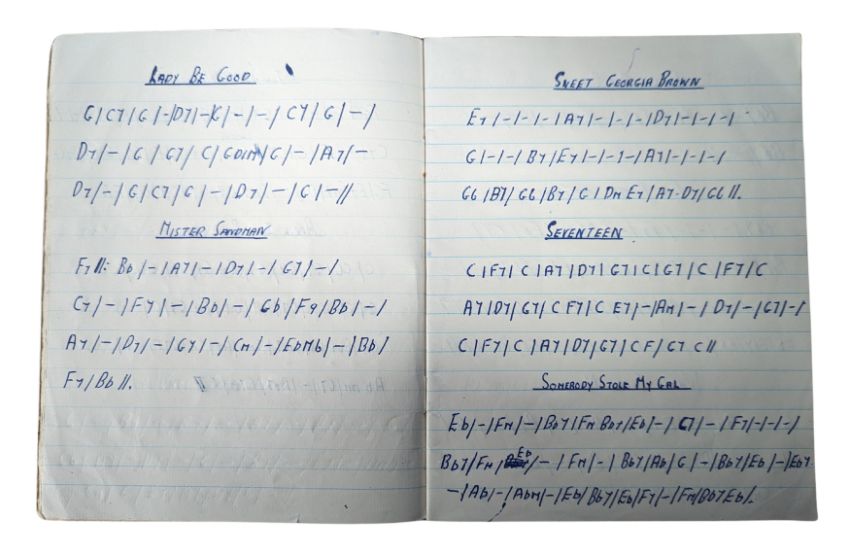 LADY BE GOOD
G/C7/G/-/D7/-/G/-/-/C7/G/-/
D7/-/G/G7/C/GDIM/G/-/A7/-
D7/-/G/C7/G/-/D7/-/G/-//
MISTER SANDMAN
F7//: Bb/-/A7/-/D7/-/G7/-/
C7/-/F7/-/Bb/-/Gb/F9/Bb/-/
A7/-/D7/-/G7/-/Cm/-/EbMb/-/Bb/
F7/Bb//.
SWEET GEORGIA BROWN
E7/-/-/-/A7/-/-/-/D7/-/-/-/
G/-/-/B7/E7/-/-/-/A7/-/-/-/
G6/B7/G6/B7/G/Dm E7/A7-D7/G6//.
SEVENTEEN
C/F7/C/A7/D7/G7/C/G7/C/F7/C
A7/D7/G7/C F7/C E7/-/Am/-/D7/-/G7/-/
C/F7/C/A7/D7/G7/C F/G7 C//
SOMEBODY STOLE MY GAL
Eb/-/Fm/-/Bb7/Fm Bb7/Eb/-/C7/-/F7/-/-/-/
Bb7/Fm/Eb/-/Fm/-/Bb7/Ab/G/-/Bb7/Eb/-/Eb7
-/Ab/-/Abm/-/Eb/Bb7/Eb/F7/-/Fm/Bb7 Eb/.